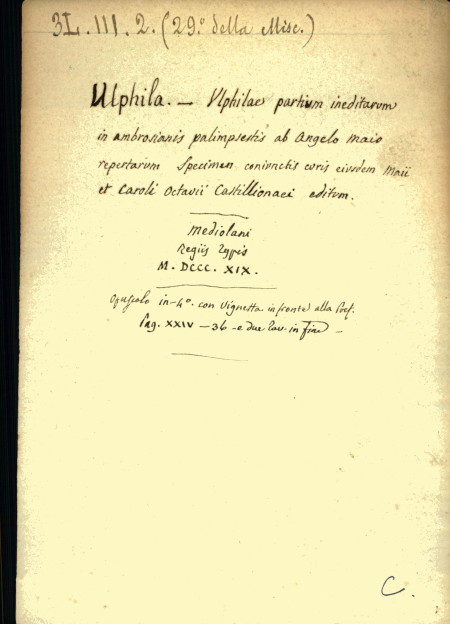 3L.III.2. (29.º della Misc.)
Ulphila. — Ulphilae partium ineditarum
in ambrosianis palimpsestis ab Angelo maio
repertarum Specimen coniunctis curis eiusdem Maii
et Caroli Octavii Castillionaei editum.
Mediolani
Regiis typis
M. DCCC. XIX.
Opuscolo in-4º. con Vignetta in fronte alla Pref.
Pag. XXIV — 36 - e due tav. in fine —
C.